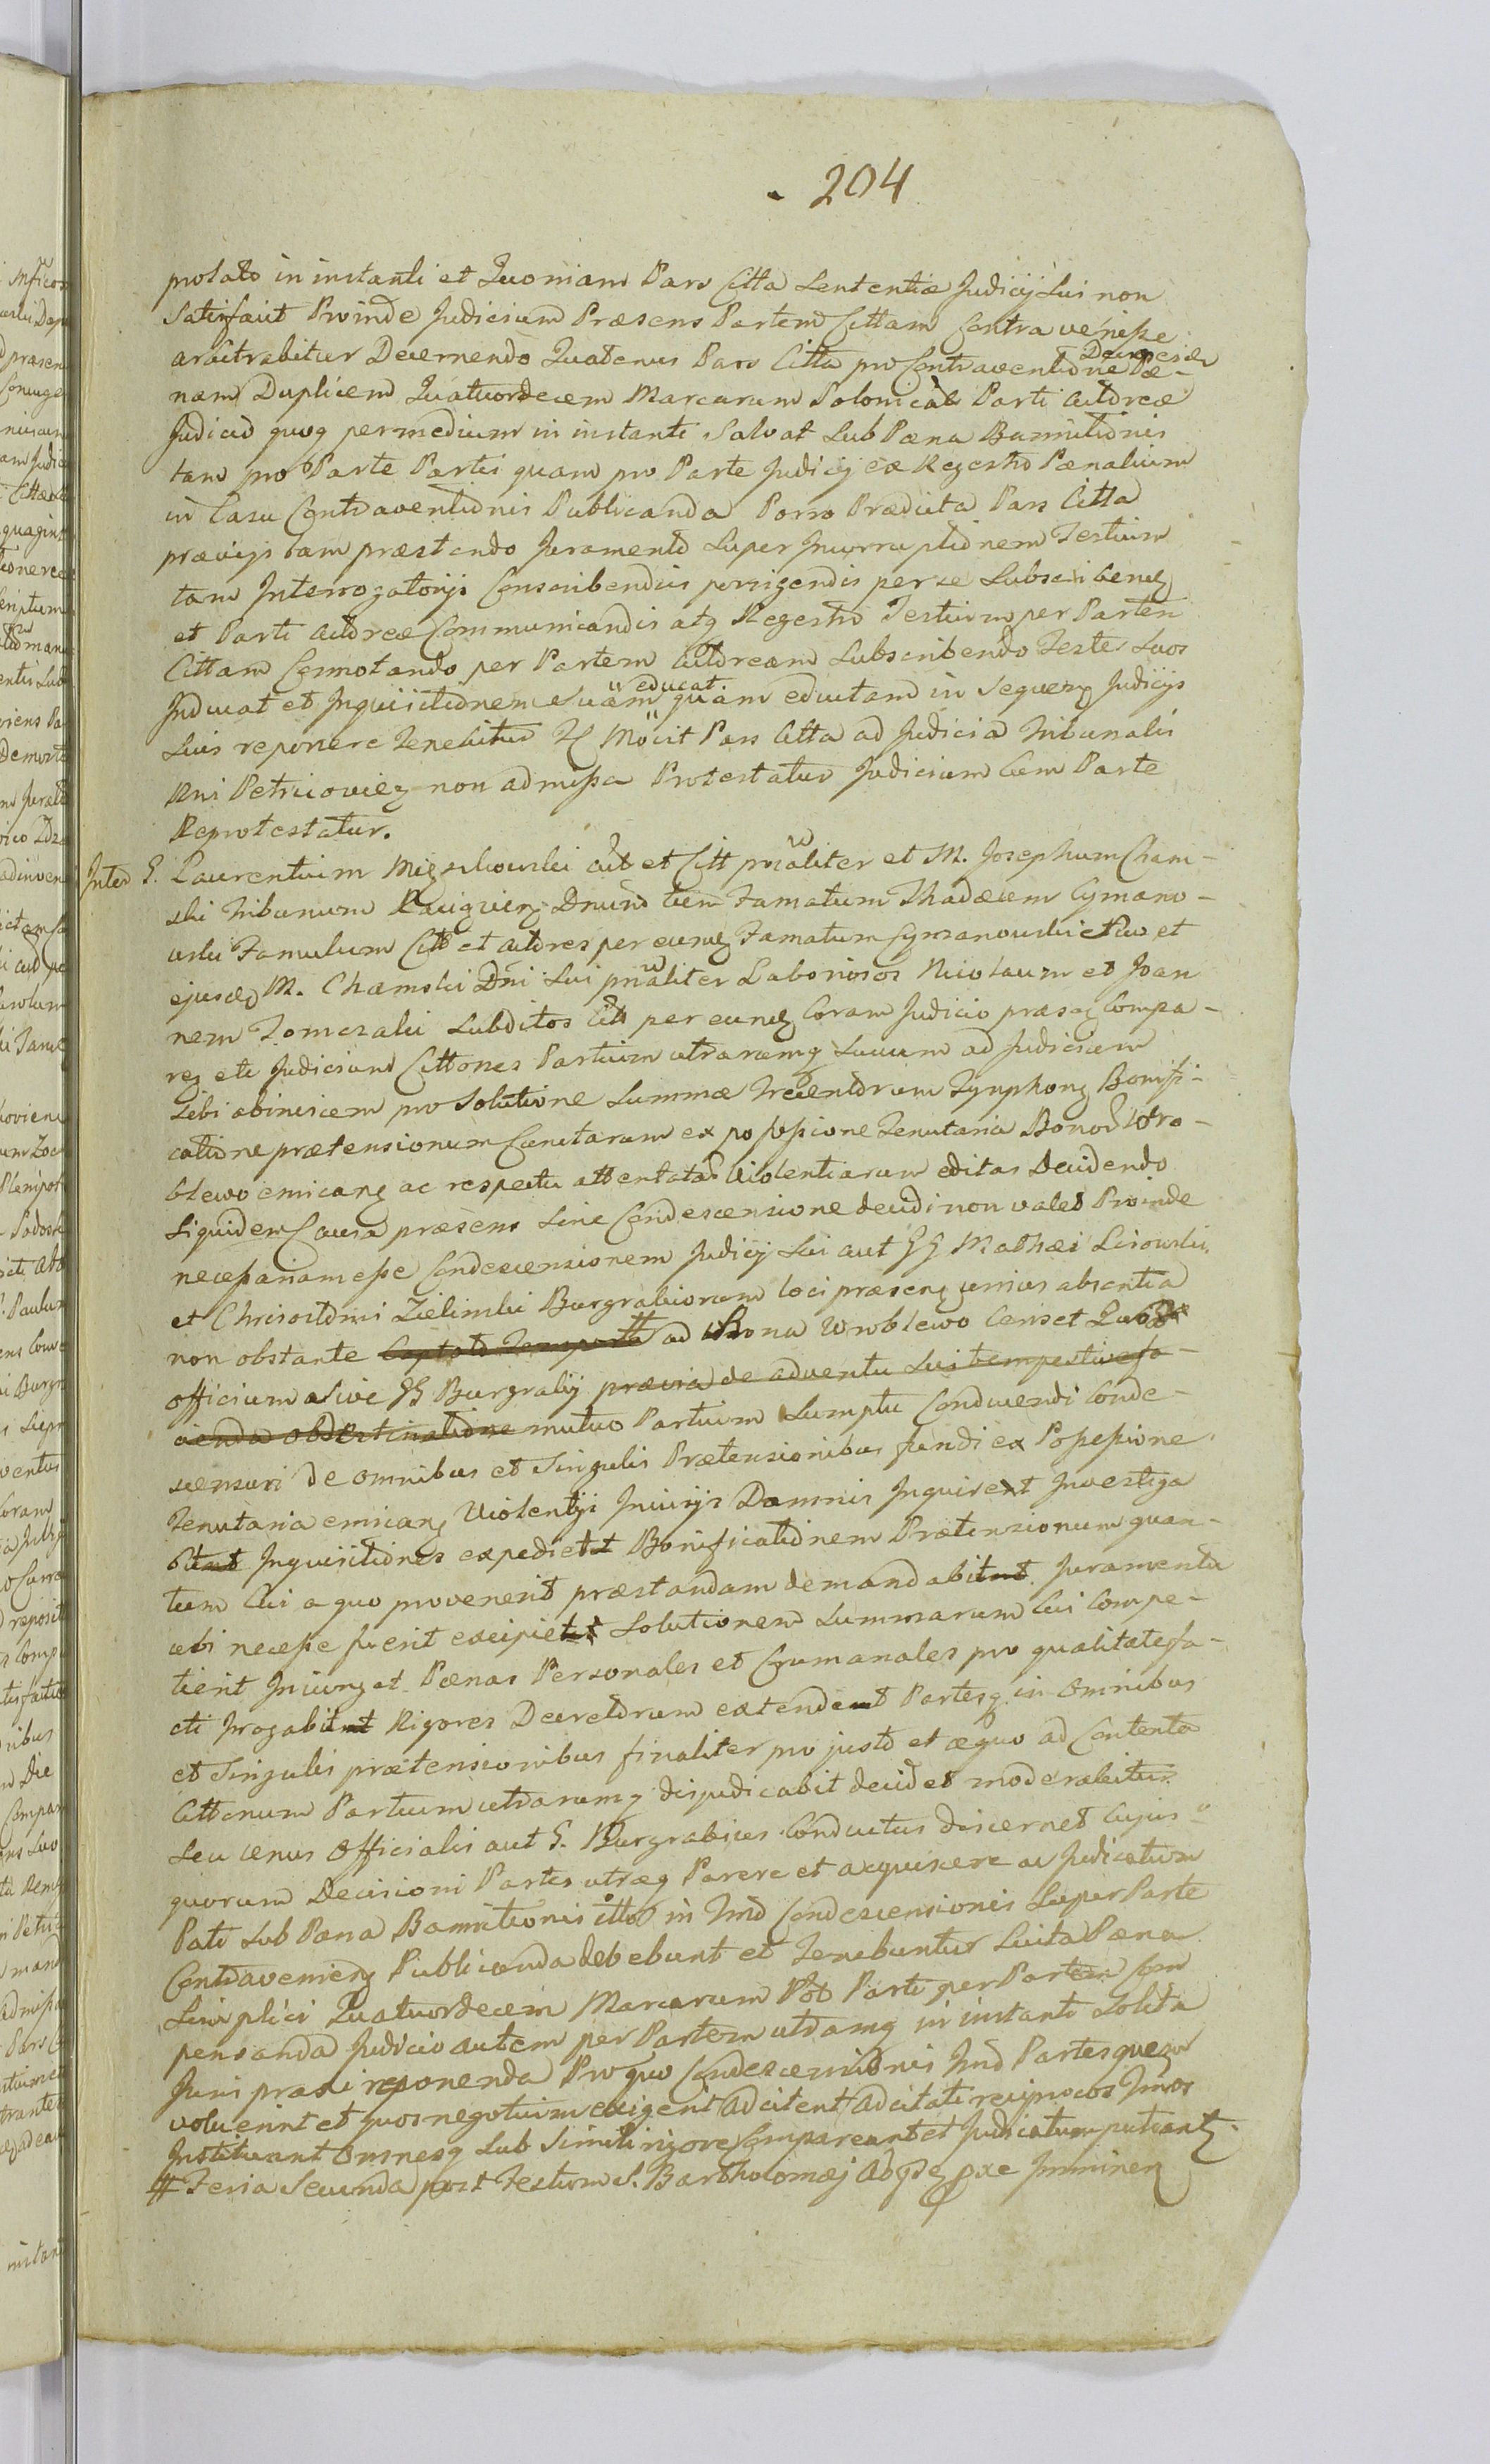 204
prolato in instanti et Quoniam Pars Citta Sententiæ Judicij Sui non
Satisfacit Proinde Judicium Præsens Partem Cittam Contra venisse
arbitrabitur Decernendo Quatenus Pars Citta pro Contraventione Pæ-
nam Duplicem Quatuordecem Marcarum Polonical Parti Actoreæ
Judicio quoq per medium in instanti Solvat Sub Pæna Bannitionis
tam pro Parte Partis quam pro Parte Judicij ex Regestro Pænalium
in Casu Contraventionis Publicanda Porro Prædicta Pars Citta
prævijs tam præstando Juramento Super Incorruptionem Testium
tam Interrogatorijs Conscribendis porrigendis per se Subscribend
et Parti Actoreæ Communicandis atq Regestro Testium per Partem
Cittam Connotando per Partem Actoream Subscribendo Testes Suos
educat
Inducat et Inquisitionem Suam quam eductam in Sequen Judicijs
Suis reponere Tenebitur Mocit Pars Citta ad Judicia Tribunalis
Rni Petricovien non admissa Protestatur Judicium Cum Parte
Reprotestatur.
Inter G. Laurentium act et Citt pnaliter et M. Josephum Cham-
ski Tribunum Dnum tum Famatum Thadæum Cymano-
wski Famulum Citt et Actores per eund Famatum Cymanowski et
ejusd M. Chamski Dni Sui pnaliter Laboriosos Nicolaum et Joan
nem Tomczaki Subditos Citt per eund Coram Judicio præs Compa-
ren etc Judicium Cittones Partium utrarumq Suum ad Judicium
Sibi abinvicem pro Solutione Summæ Trecentorum Tynphon Bonifi-
catione prætensionum Cunctarum ex possessione Tenutaria Bonor Wro-
blewo emican ac respectu attentatar Violentiarum editas Decidendo
Siquidem Causa præsens Sine Condescensione decidi non valet Proinde
necessariam esse Condescensionem Judicij Sui aut GG Mathæi Lisowski
et Chrisostomi Zielinski Burgrabiorum loci præsen unius absentia
non obstante Captato Tempore # ad Bona Wroblewo Censet Quod
officium Sive GG Burgrabij prævia de adventu Sui tempestive fa-
cienda obdestinatione mutuo Partium Sumptu Conducendi Conde-
scensuri de omnibus et Singulis Prætensionibus fundi ex Possessione
Tenutaria emican Violentijs Injurijs Damnis Inquirent Investiga
bunt Inquisitiones expedient Bonificationem Prætensionum quan-
tum Cui a quo provenerit præstandam demandabitnt Juramenta
ubi necesse fuerit excipient Solutionem Summarum Cui Compe-
tierit Injunget Pænas Personales et Grumanales pro qualitate fa-
cti Irrogabitnt Rigores Decretorum extendent Partesq in Omnibus
et Singulis prætensionibus finaliter pro justo et æquo ad Contenta
Cittonum Partium utrarumq disjudicabit decidet moderabitur
Seu unus Officialis aut G. Burgrabius Conductus discernet Cujus
quorum Decisioni Partes utræq Parere et acquiescere ac Judicatum
Pati Sub Pæna Bannitionis in Tmo Condescensionis Super Parte
Contravenien Publicanda debebunt et Tenebuntur Luita Pæna
Simplici Quatuordecem Marcarum Pol Parti per Partem Com
pensanda Judicio autem per Partem utramq in instanti Solita
Juri præsti reponenda Pro quo Condescensionis Tmo Partes quem
voluerint et quos negotium exigerit Adcitent Adcitati reciprocos Tmos
Instituant Omnesq Sub Simili rigore Compareant et Judicatum patiant
# Feria Secunda post Festum S. Bartholomæj Ap prox Imminen